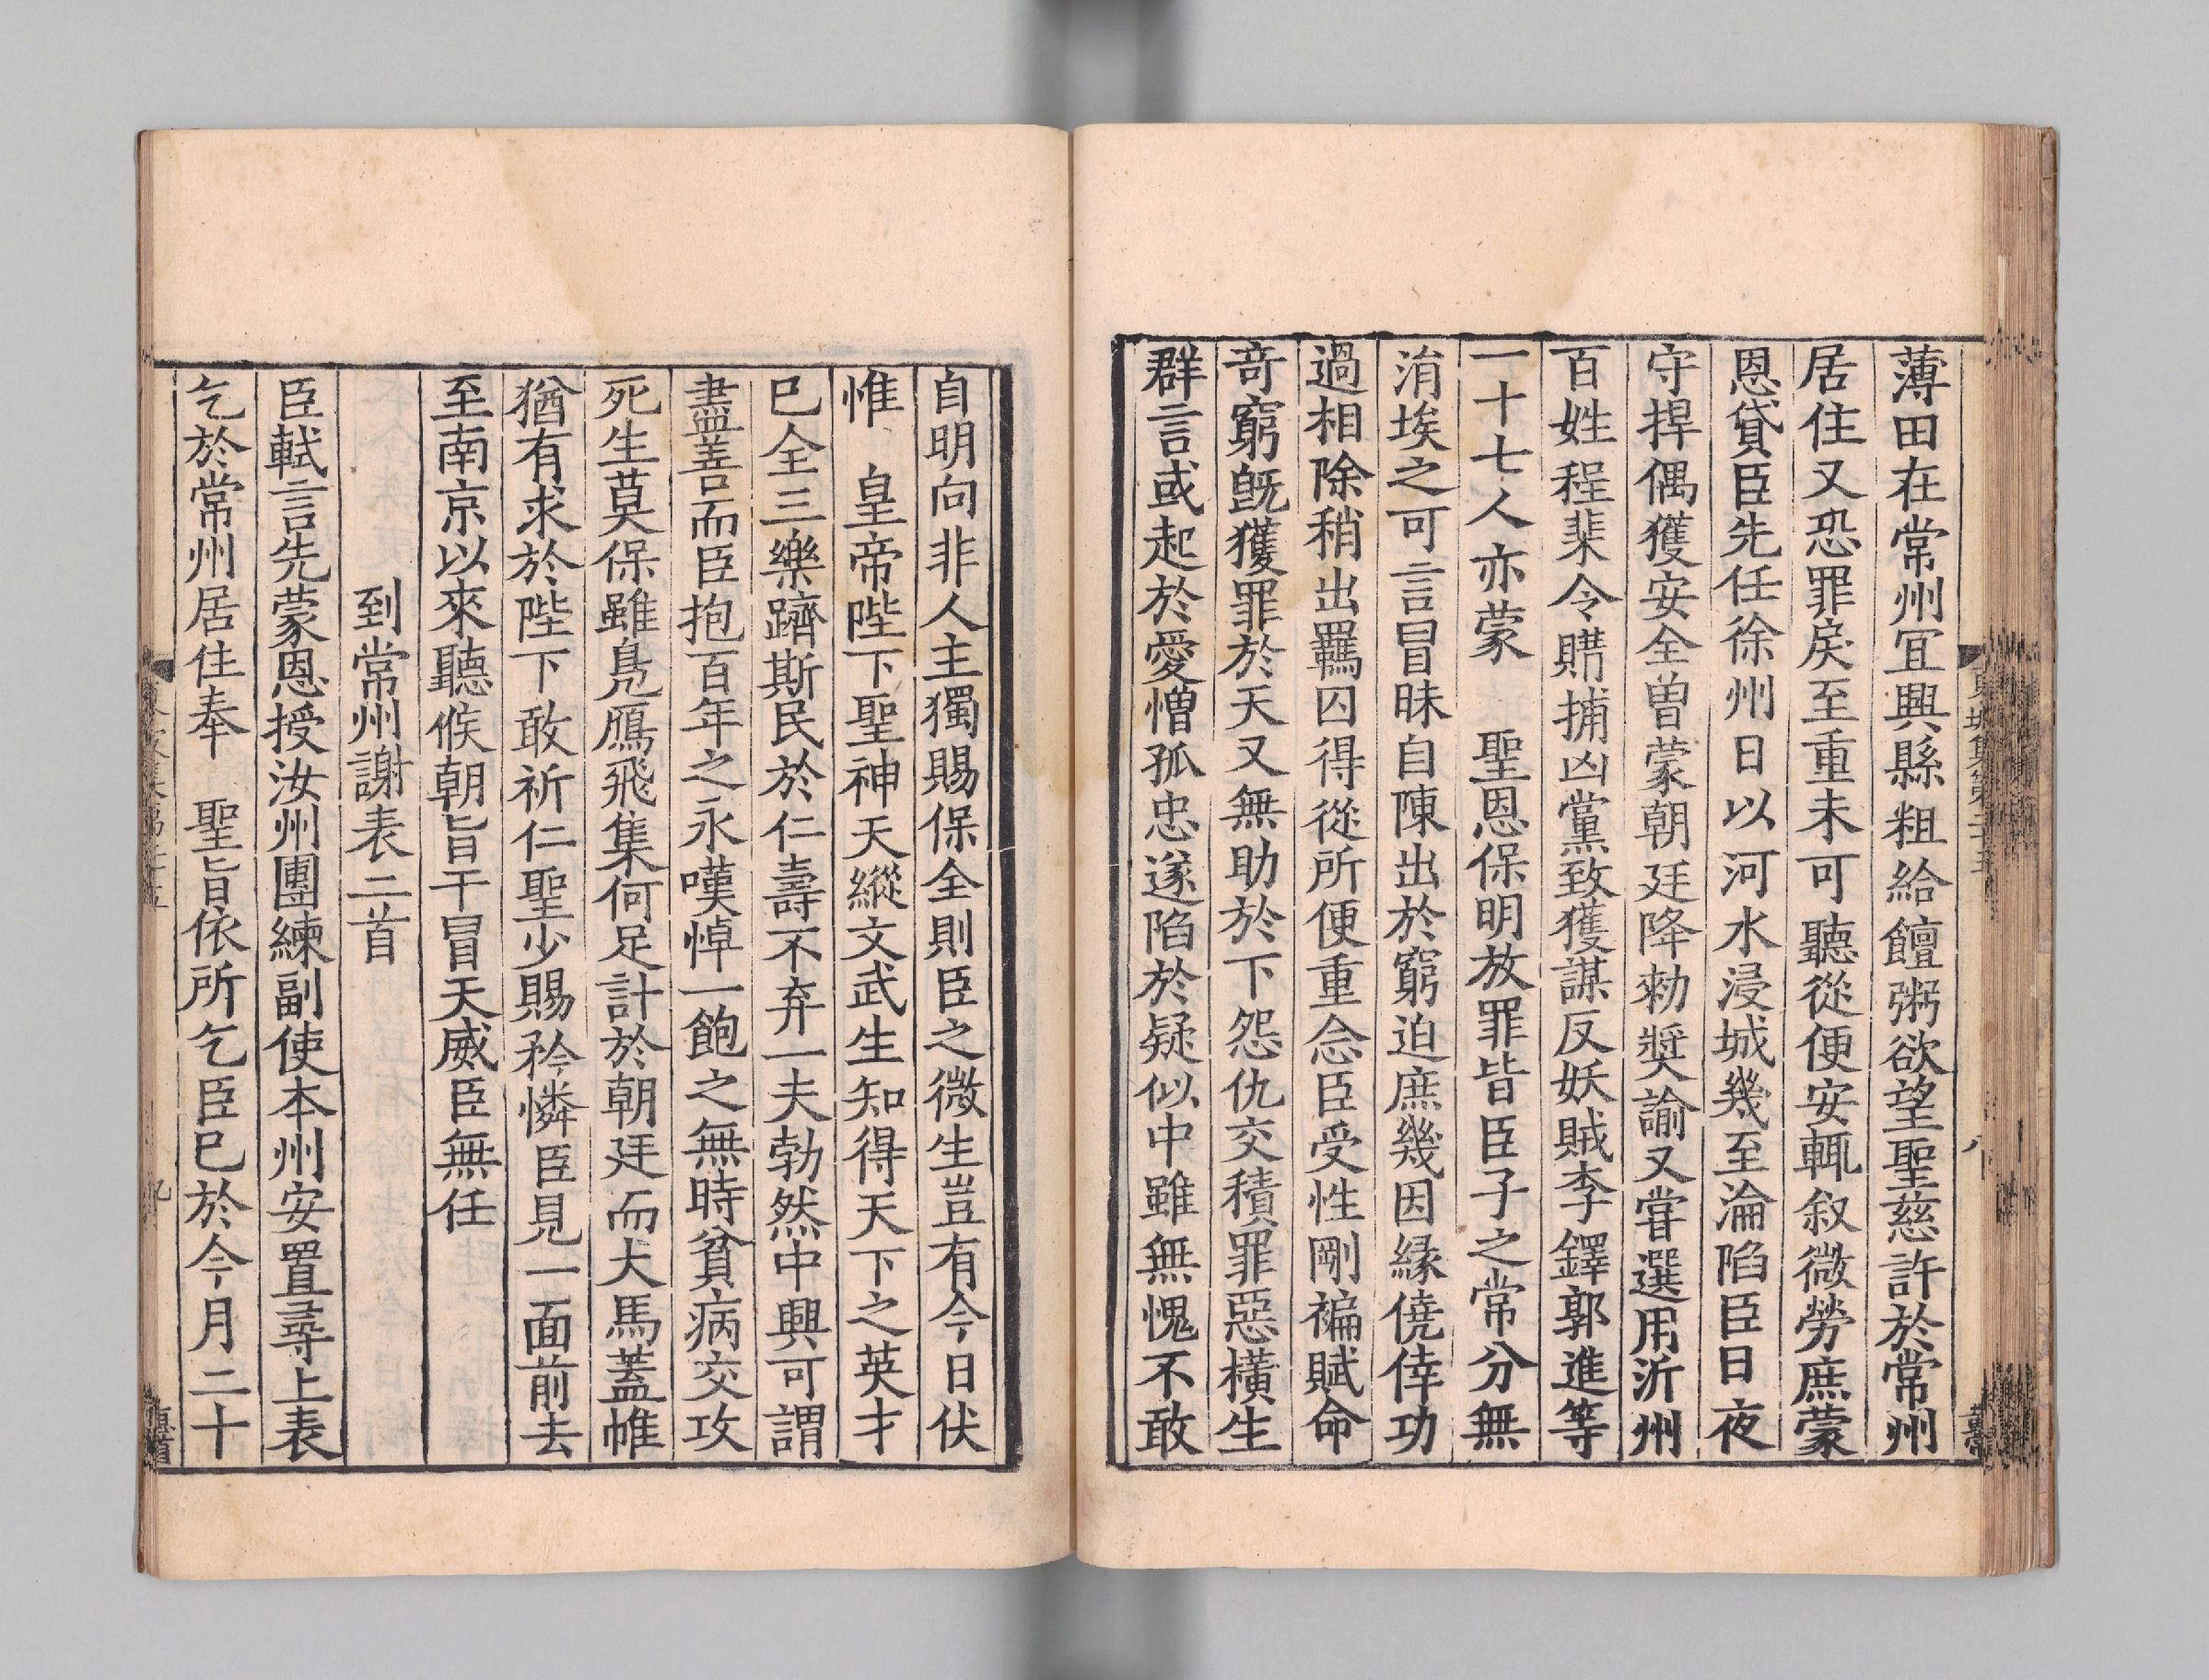 薄田在常州宜興縣粗給饘粥欲望聖慈許於常州
居住又恐罪戾至重未可聽從便安輒叙微勞庶蒙
恩貸臣先任徐州日以河水浸城幾至淪陷臣日夜
守捍偶獲安全曽蒙朝廷降勑奬諭又甞選用沂州
百姓程棐令購捕凶黨致獲謀反妖賊李鐸郭進等
一十七人亦蒙 聖恩保明放罪皆臣子之常分無
涓埃之可言冒昧自陳出於窮迫庶幾因縁僥倖功
過相除稍出羈囚得從所便重念臣受性剛褊賦命
竒窮旣獲罪於天又無助於下怨仇交積罪惡横生
群言或起於愛憎孤忠遂陷於疑似中雖無愧不敢
自明向非人主獨賜保全則臣之微生豈有今日伏
惟 皇帝陛下聖神天縱文武生知得天下之英才
已全三樂躋斯民於仁壽不弃一夫勃然中興可謂
盡善而臣抱百年之永嘆悼一飽之無時貧病交攻
死生莫保雖鳬鴈飛集何足計於朝廷而犬馬蓋帷
猶有求於陛下敢祈仁聖少賜矜憐臣見一面前去
至南京以來聽候朝旨干冒天威臣無任
到常州謝表二首
臣軾言先蒙恩授汝州團練副使本州安置尋上表
乞於常州居住奉 聖旨依所乞臣已於今月二十